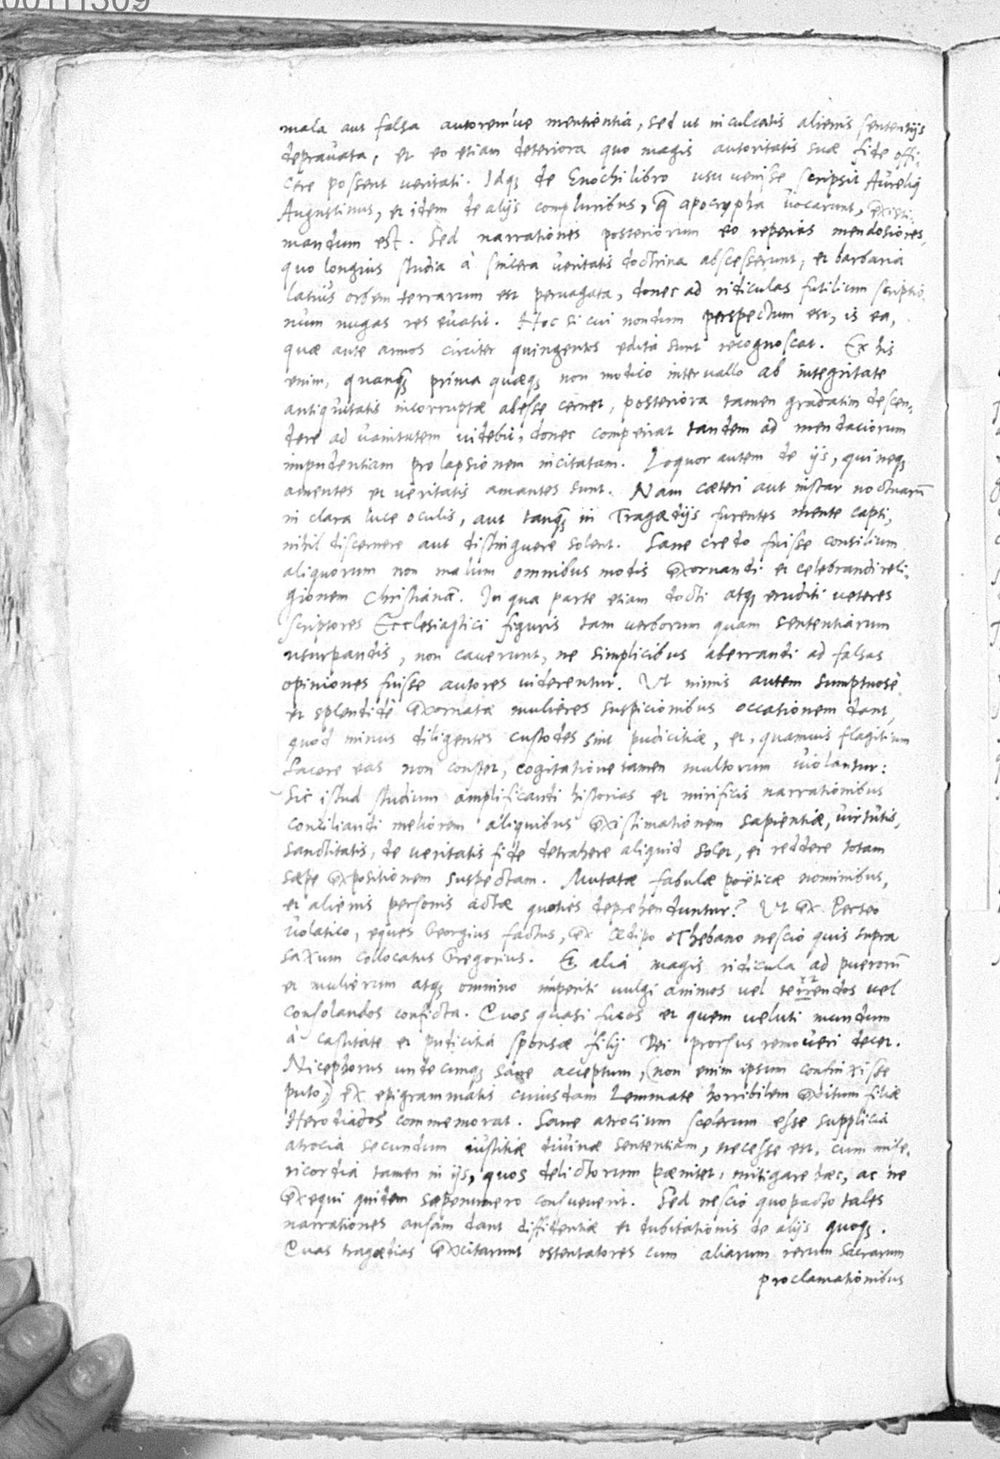 00111309
mala aut falsa autoremúe mentientia, sed ut inculcatis alienis sententijs
deprauata, et eo etiam deteriora quo magis autoritatis suæ fide offi,
cere possent ueritati. Idq; de Enochi libro usu uenisse scripsit Aureliꝰ
Augustinus, et idem de alijs compluribus, q̃ apocrypha uocarunt, existi,
mandum est. Sed narrationes posteriorum eo reperias mendosiores,
quo longius studia à sincera ueritatis doctrina abscesserunt, et barbaria
latius orbem terrarum est peruagata, donec ad ridiculas futilium scriptio,
num nugas res euasit. Hoc si cui nondum perspectum est, is ea,
quæ ante annos circiter quingentos edita sunt recognoscat. Ex his
enim, quanq̃ prima quæq; non modico interuallo ab integritate
antiquitatis incorruptæ abesse cernet, posteriora tamen gradatim descen,
dere ad uanitatem uidebit, donec comperiat tandem ad mendaciorum
impudentiam prolapsionem incitatam. Loquor autem de ijs, qui neq;
amentes et ueritatis amantes sunt. Nam cæteri aut instar noctuarũ
in clara luce oculis, aut tanq̃ in Tragœdijs furentes mente capti,
nihil discernere aut distinguere solent. Sane credo fuisse consilium
aliquorum non malum omnibus modis exornandi et celebrandi reli,
gionem Christianã. In qua parte etiam docti atq; eruditi ueteres
scriptores Ecclesiastici figuris tam uerborum quam sententiarum
usurpandis, non cauerunt, ne simplicibus aberrandi ad falsas
opiniones fuisse autores uiderentur. Vt nimis autem sumptuosè
et splendidè exornatæ mulieres suspicionibus occasionem dant,
quòd minus diligentes custodes sint pudicitiæ, et, quamuis flagitium
facere eas non constet, cogitatione tamen multorum uiolantur:
Sic istud studium amplificandi historias et mirificis narrationibus
conciliandi meliorem aliquibus existimationem sapientiæ, uirtutis,
sanctitatis, de ueritatis fide detrahere aliquid solet, et reddere totam
sæpe expositionem suspectam. Mutatæ fabulæ poëticæ nominibus,
et alienis personis actæ quoties deprehenduntur? Vt ex Perseo
uolatico, eques Georgius factus, ex Œdipo Thebano nescio quis supra
saxum collocatus Gregorius. Et alia magis ridicula ad puerorũ
et mulierum atq; omnino imperiti uulgi animos uel terrendos uel
consolandos conficta. Quos quasi fucos et quem ueluti mundum
à castitate et pudicitia sponsæ filij Dei prorsus remoueri decet.
Nicephorus undecunq; sane acceptum, (non enim ipsum confinxisse
puto,) ex epigrammatis cuiusdam Lemmate horribilem exitum filiæ
Herodiados commemorat. Sane atrocium scelerum esse supplicia
atrocia secundum iustitiæ diuinæ sententiam, necesse est, cum mise,
ricordia tamen in ijs, quos delictorum pœnitet, mitigare hæc, ac ne
exequi quidem sæpenumero consueuerit. Sed nescio quo pacto tales
narrationes ansam dant diffidentiæ et dubitationis de alijs quoq;.
Quas tragœdias excitarunt ostentatores cum aliarum rerum sacrarum
proclamationibus